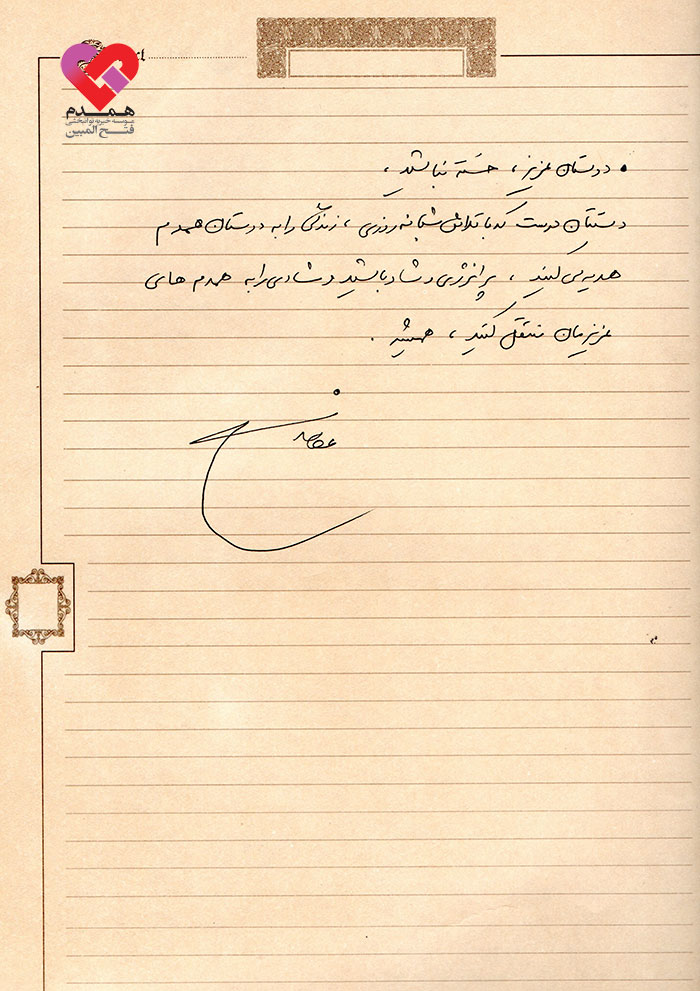 همدم
موسسه خیریه توانبخشی
فتح المبین
• دوستان عزیز ، خسته نباشید ،
دستتان درست که با تلاش شبانه روزی ، زندگی را به دوستان همدم
هدیه می کنید ، پر انرژی و شاد باشید و شادی را به همدم های
عزیزمان منتقل کنید ، همیشه .